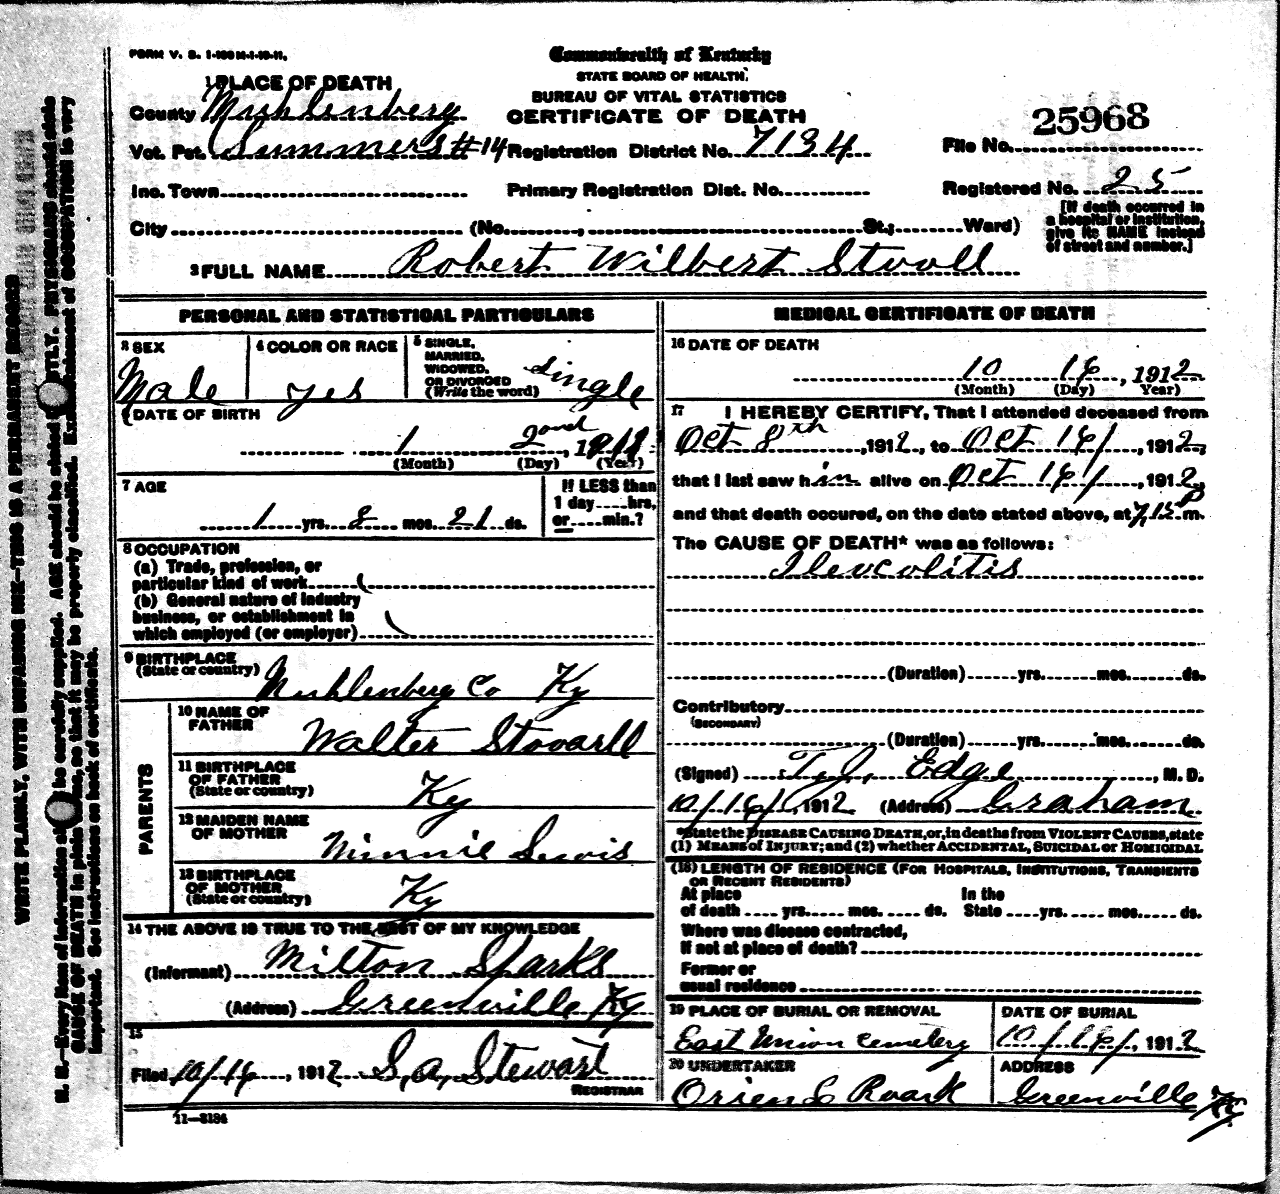 FORM V. S. 1-100 M-1-10-11.
Commonwealth of Kentucky
STATE BOARD OF HEALTH.
BUREAU OF VITAL STATISTICS
CERTIFICATE OF DEATH
1 PLACE OF DEATH
County Muhlenberg
Vot. Pct. Summers #14 Registration District No. 7134
25968
File No.
Inc. Town Primary Registration Dist. No.
Registered No. 25
City (No. , St.; Ward)
[If death occurred in
a hospital or institution,
give its NAME instead
of street and number.]
2 FULL NAME Robert Wilbert Stvoll
PERSONAL AND STATISTICAL PARTICULARS
3 SEX
Male
4 COLOR OR RACE
yes
5 SINGLE,
MARRIED,
WIDOWED,
OR DIVORCED
(Write the word)
single
6 DATE OF BIRTH
1 2ond, 1911
(Month) (Day) (Year)
7 AGE
1 yrs. 8 mos. 21 ds.
If LESS than
1 day hrs,
or min.?
8 OCCUPATION
(a) Trade, profession, or
particular kind of work
(b) General nature of industry
business, or establishment in
which employed (or employer)
9 BIRTHPLACE
(State or country) Muhlenberg Co Ky
PARENTS
10 NAME OF
FATHER
Walter Stovarll
11 BIRTHPLACE
OF FATHER
(State or country) Ky
12 MAIDEN NAME
OF MOTHER
Minnie Lewis
13 BIRTHPLACE
OF MOTHER
(State or country) Ky
14 THE ABOVE IS TRUE TO THE BEST OF MY KNOWLEDGE
(Informant) Milton Sparks
(Address) Greenville Ky
15
Filed 10/16, 1912 S, a, Stewart
REGISTRAR
11—3184
MEDICAL CERTIFICATE OF DEATH
16 DATE OF DEATH
10 16, 1912
(Month) (Day) Year)
17 I HEREBY CERTIFY, That I attended deceased from
Oct 8th, 1912, to Oct 16/ 1912,
that I last saw him alive on Oct 16/ 1912,
and that death occured, on the date stated above, at 7,15 P m.
The CAUSE OF DEATH* was as follows:
Ileucolitis
(Duration) yrs. mos. ds.
Contributory
(SECONDARY)
(Duration) yrs. mos. ds.
(Signed) T. J. Edge, M. D.
10/16/, 1912 (Address) Graham
*State the DISEASE CAUSING DEATH, or, in deaths from VIOLENT CAUSES, state
(1) MEANS of INJURY; and (2) whether ACCIDENTAL, SUICIDAL or HOMICIDAL
(18) LENGTH OF RESIDENCE (FOR HOSPITALS, INSTITUTIONS, TRANSIENTS
OR RECENT RESIDENTS)
At place In the
of death yrs. mos. ds. State yrs. mos. ds.
Where was disease contracted,
If not at place of death?
Former or
usual residence
19 PLACE OF BURIAL OR REMOVAL
East Union Cemetery
DATE OF BURIAL
10/16/, 1912
20 UNDERTAKER
Orien L Roark
ADDRESS
Greenville Ky
WRITE PLAINLY, WITH UNFADING INK—THIS IS A PERMANENT RECORD
N. B.—Every item of information should be carefully supplied. AGE should be stated EXACTLY. PHYSICIANS should state
CAUSE OF DEATH in plain terms, so that it may be properly classified. Exact statement of OCCUPATION is very
important. See instructions on back of certificate.